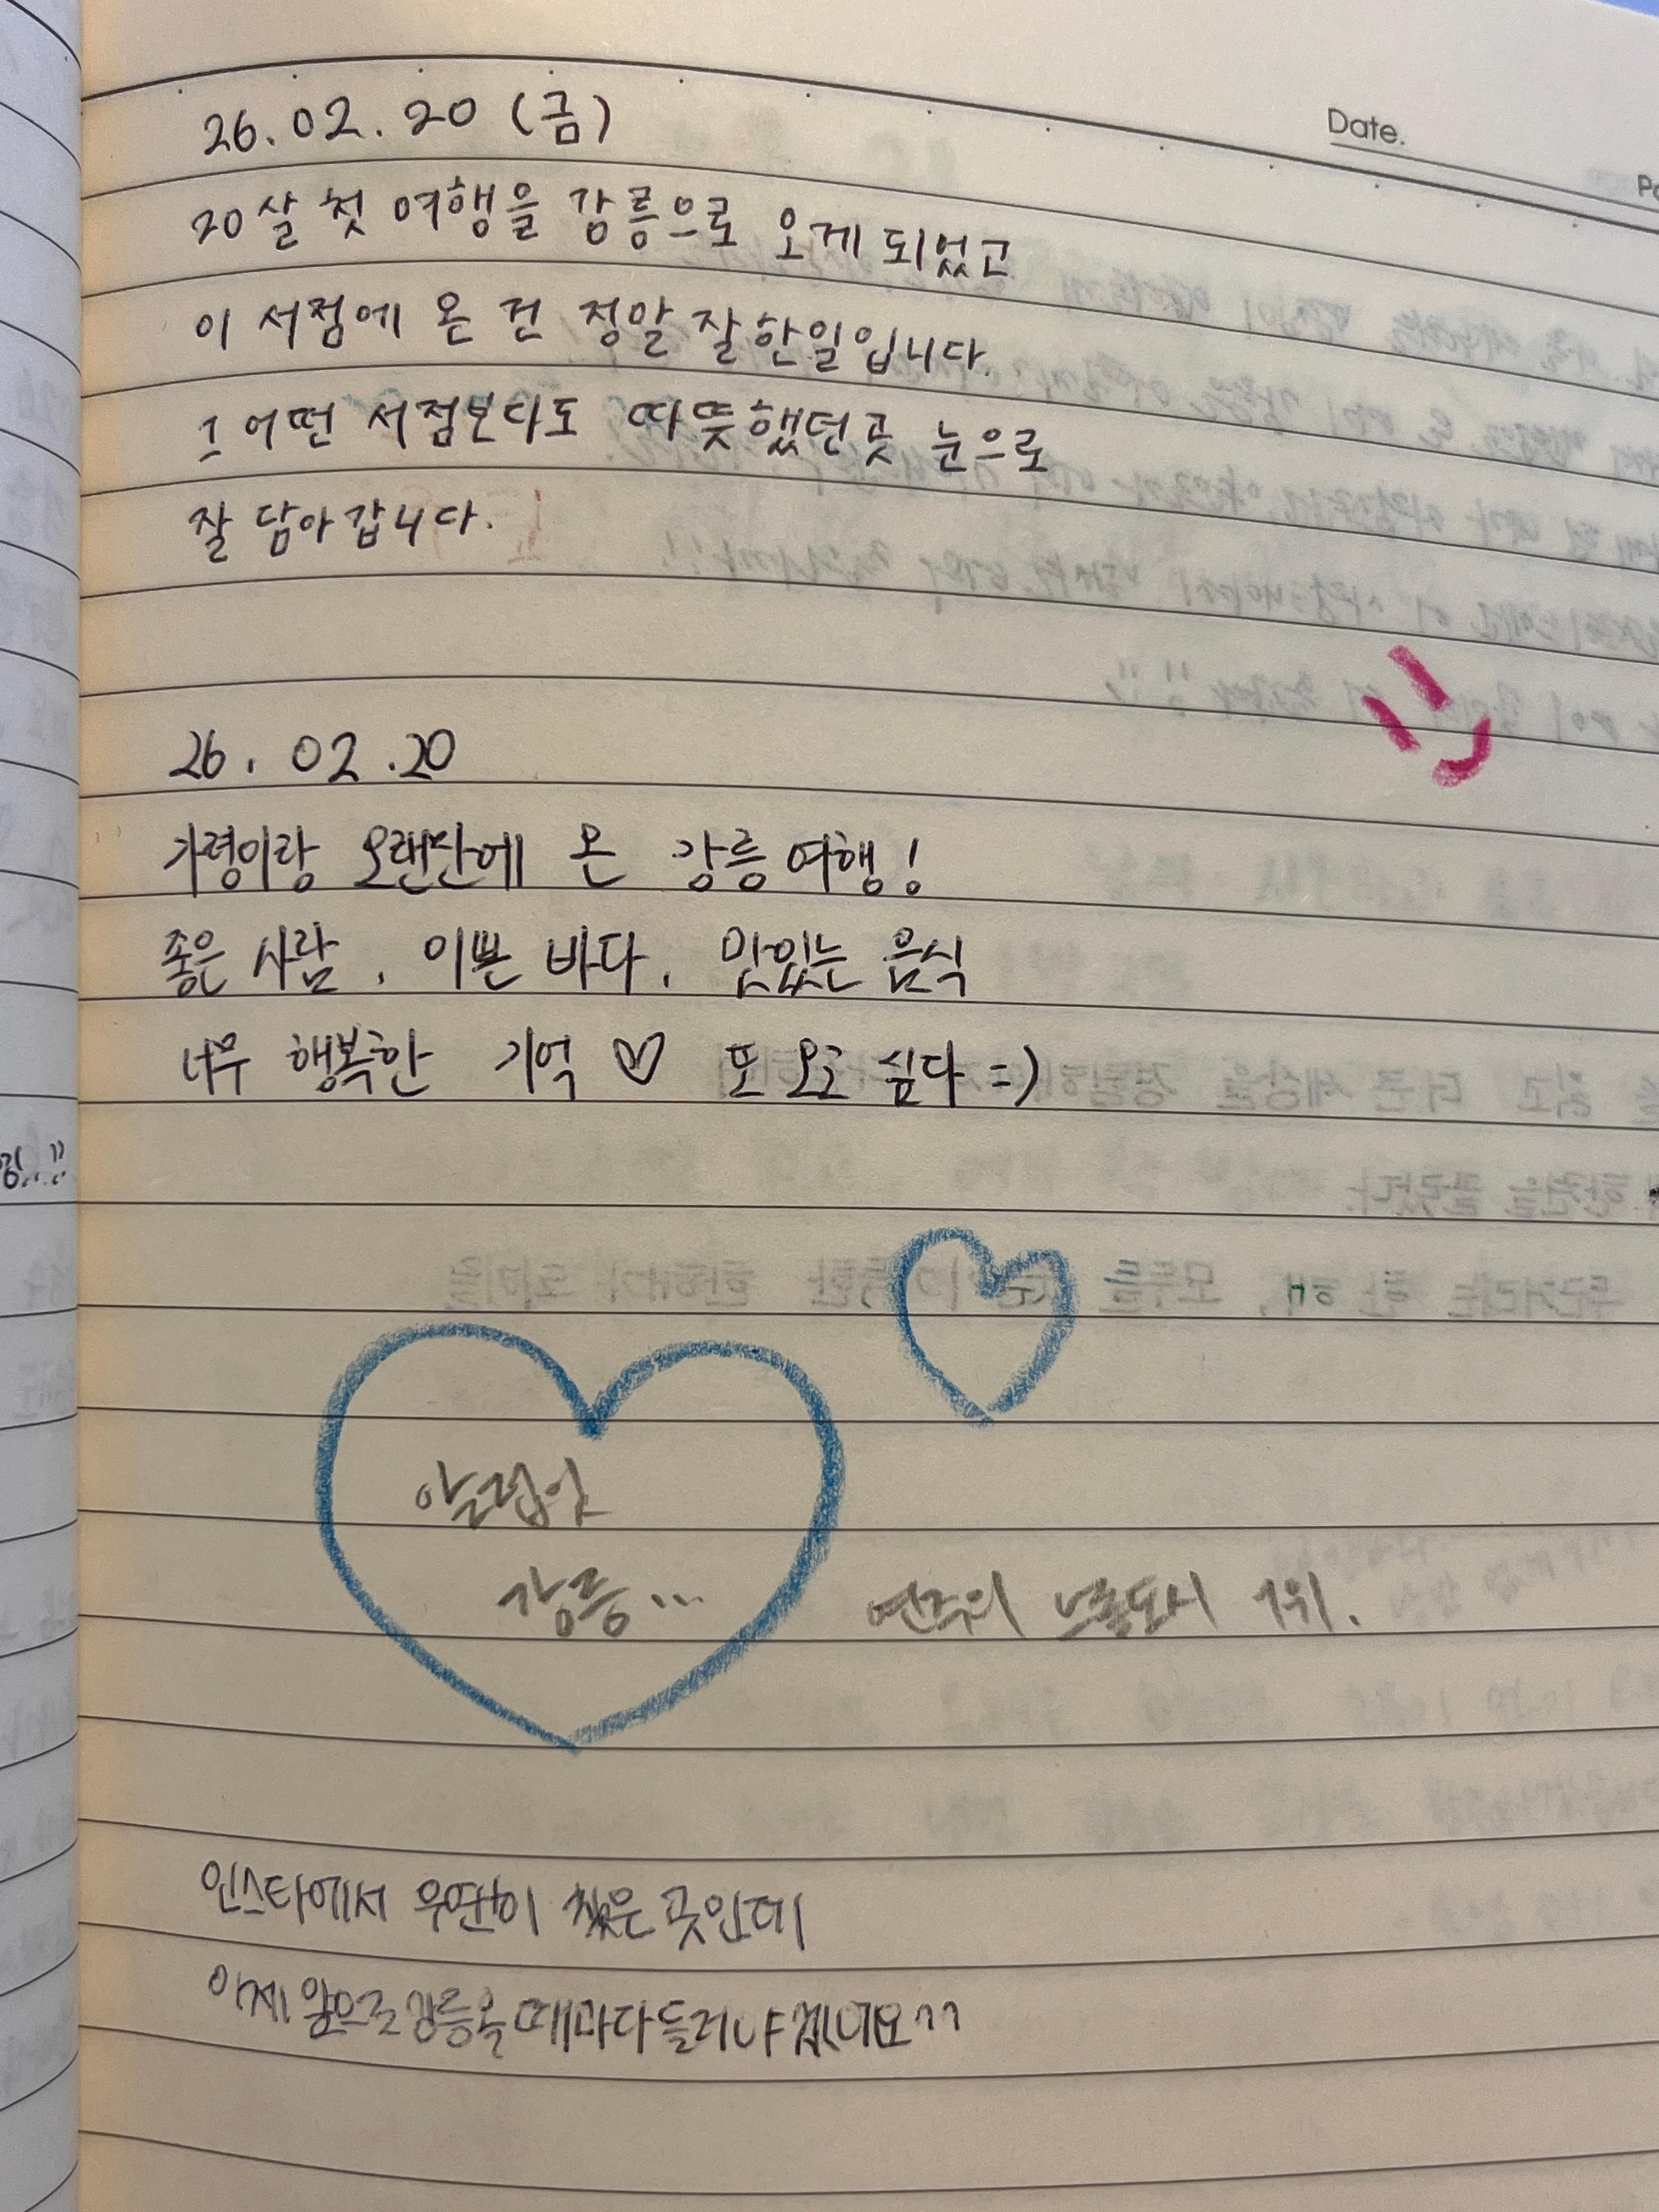 Date.
26.02.20 (금)
20살 첫 여행을 강릉으로 오게 되었고
이 서점에 온 건 정말 잘한일입니다.
그 어떤 서점보다도 따뜻했던곳 눈으로
잘 담아갑니다.
26. 02.20
가령이랑 오랜만에 온 강릉여행!
좋은 사람, 이쁜 바다, 맛있는 음식
너무 행복한 기억 ♡ 또 오고 싶다 =)
알럽잇
강릉...
연주의 노후도시 1위.
인스타에서 우연히 찾은 곳인데
이제 앞으로 강릉올때마다 들러야겠네요^^